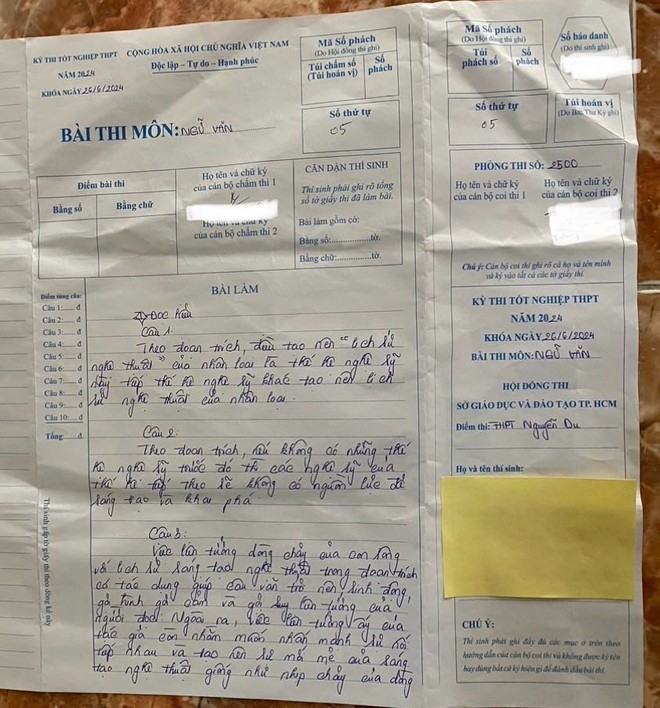 KỲ THI TỐT NGHIỆP THPT
NĂM 2024
KHÓA NGÀY 26/6/2024
CỘNG HÒA XÃ HỘI CHỦ NGHĨA VIỆT NAM
Độc lập – Tự do – Hạnh phúc
BÀI THI MÔN: NGỮ VĂN
Mã Số phách
(Do Hội đồng thi ghi)
Túi chấm số
(Túi hoán vị)
Số
phách
Số thứ tự
05
Điểm bài thi
Bằng số
Bằng chữ
Họ tên và chữ ký
của cán bộ chấm thi 1
Họ tên và chữ ký
của cán bộ chấm thi 2
CĂN DẶN THÍ SINH
Thí sinh phải ghi rõ tổng
số tờ giấy thi đã làm bài.
Bài làm gồm có:
Bằng số:...............tờ.
Bằng chữ:...............tờ.
Điểm từng câu:
Câu 1:..... đ
Câu 2:..... đ
Câu 3:..... đ
Câu 4:..... đ
Câu 5:..... đ
Câu 6:..... đ
Câu 7:..... đ
Câu 8:..... đ
Câu 9:..... đ
Câu 10:..... đ
Tổng:..... đ
Thí sinh gấp tờ giấy thi theo dòng kẻ này
BÀI LÀM
Đọc hiểu
Câu 1:
Theo đoạn trích, điều tạo nên "lịch sử
nghệ thuật" của nhân loại là thế hệ nghệ sỹ
này tiếp thế hệ nghệ sỹ khác tạo nên lịch
sử nghệ thuật của nhân loại.
Câu 2:
Theo đoạn trích, nếu không có những thế
hệ nghệ sỹ trước đó thì các nghệ sỹ của
thế hệ tiếp theo sẽ không có nguồn lực để
sáng tạo và khai phá
Câu 3:
Việc liên tưởng dòng chảy của con sông
với lịch sử sáng tạo nghệ thuật trong đoạn trích
có tác dụng giúp câu văn trở nên sinh động,
gợi hình gợi cảm và gợi sự liên tưởng của
người đọc. Ngoài ra, việc liên tưởng ấy của
tác giả còn nhằm muốn nhấn mạnh sự nối
tiếp nhau và tạo nên sự mới mẻ của sáng
tạo nghệ thuật giống như nhịp chảy của dòng
Mã Số phách
(Do Hội đồng thi ghi)
Túi
phách số
Số
phách
Số báo danh
(Do thí sinh ghi)
Số thứ tự
05
Túi hoán vị
(Do Ban Thư Ký ghi)
PHÒNG THI SỐ: 2500
Họ tên và chữ ký
của cán bộ coi thi 1
Họ tên và chữ ký
của cán bộ coi thi 2
Chú ý: Cán bộ coi thi ghi rõ cả họ và tên mình
và ký vào tất cả các tờ giấy thi.
KỲ THI TỐT NGHIỆP THPT
NĂM 2024
KHÓA NGÀY 26/6/2024
BÀI THI MÔN: NGỮ VĂN
HỘI ĐỒNG THI
SỞ GIÁO DỤC VÀ ĐÀO TẠO TP. HCM
Điểm thi: THPT Nguyễn Du
Họ và tên thí sinh:
CHÚ Ý:
Thí sinh phải ghi đầy đủ các mục ở trên theo
hướng dẫn của cán bộ coi thi và không được ký tên
hay dùng bất cứ ký hiệu gì để đánh dấu bài thi.